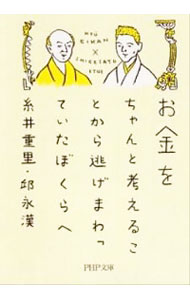 KYŪ EIKAN
×
SHIGESATO ITOI
お金を
ちゃんと考えるこ
とから逃げまわっ
ていたぼくらへ
糸井重里・邱永漢
PHP文庫